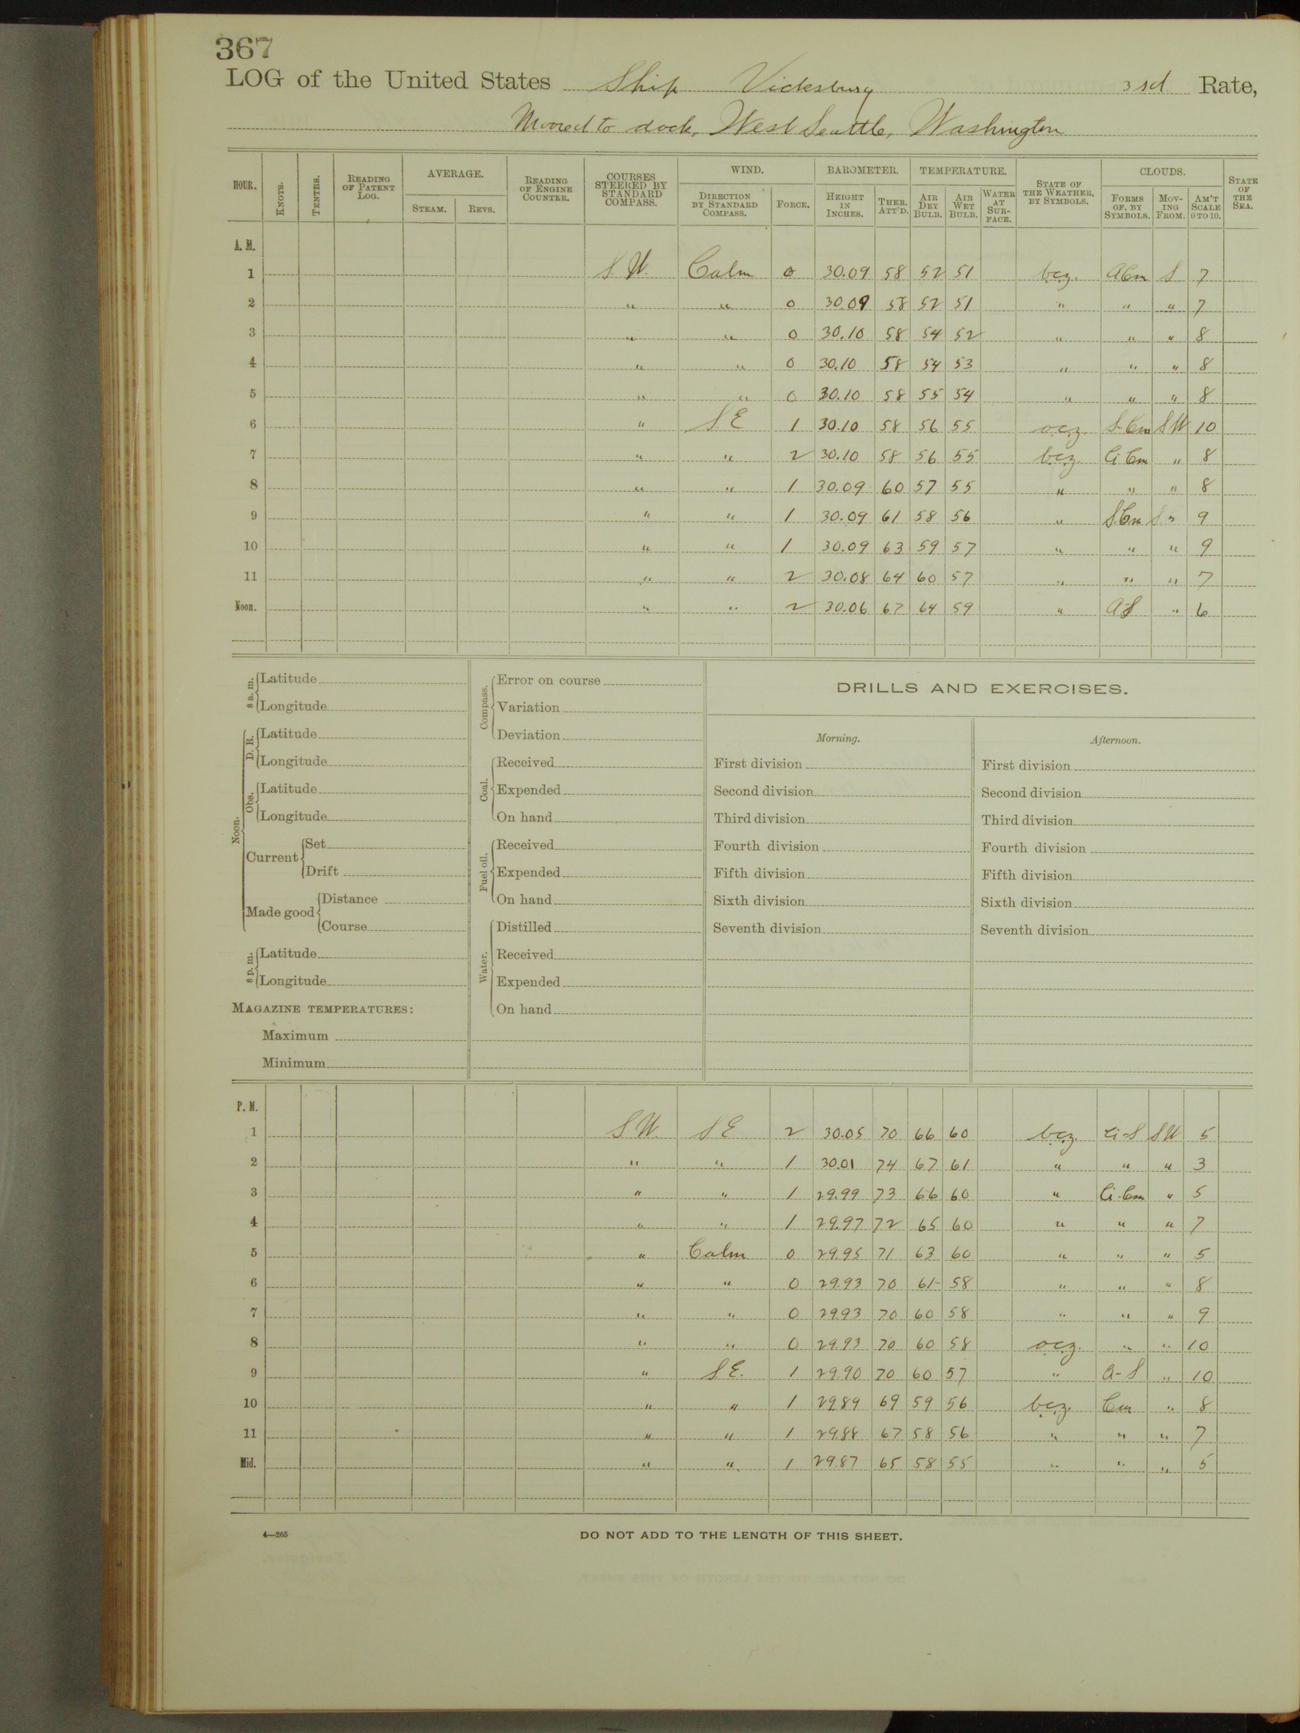 367
LOG of the United States Ship Vicksburg 3rd Rate,
Moored to dock, West Seattle, Washington
HOUR. KNOTS. TENTHS. READING OF PATENT LOG. AVERAGE. STEAM. REVS. READING OF ENGINE COUNTER. COURSES STEERED BY STANDARD COMPASS. WIND. DIRECTION BY STANDARD COMPASS. FORCE. BAROMETER. HEIGHT IN INCHES. THER. ATT'D. TEMPERATURE. AIR DRY BULB. AIR WET BULB. WATER AT SUR-FACE. STATE OF THE WEATHER, BY SYMBOLS. CLOUDS. FORMS OF, BY SYMBOLS. MOV-ING FROM. AM'T SCALE 0 TO 10. STATE OF THE SEA.
A. M.
1 S W. Calm 0 30.09 58 52 51 bcz. A Cu S 7
2 " " 0 30.09 58 52 51 " " " 7
3 " " 0 30.10 58 54 52 " " " 8
4 " " 0 30.10 58 54 53 " " " 8
5 " " 0 30.10 58 55 54 " " " 8
6 " S E 1 30.10 58 56 55 ocz S-Cu S W 10
7 " " 2 30.10 58 56 55 bcz Ci Cu " 8
8 " " 1 30.09 60 57 55 " " " 8
9 " " 1 30.09 61 58 56 " S.Cu " 9
10 " " 1 30.09 63 59 57 " " " 9
11 " " 2 30.08 64 60 57 " " " 7
Noon. " " 2 30.06 67 64 59 " A-S " 6
8 a. m. Latitude
Longitude
Noon. D. R. Latitude
Longitude
Obs. Latitude
Longitude
Current Set
Drift
Made good Distance
Course
8 p. m. Latitude
Longitude
MAGAZINE TEMPERATURES:
Maximum
Minimum
Compass. Error on course
Variation
Deviation
Coal. Received
Expended
On hand
Fuel oil. Received
Expended
On hand
Water. Distilled
Received
Expended
On hand
DRILLS AND EXERCISES.
Morning. Afternoon.
First division First division
Second division Second division
Third division Third division
Fourth division Fourth division
Fifth division Fifth division
Sixth division Sixth division
Seventh division Seventh division
P. M.
1 S W. S E 2 30.05 70 66 60 bcz. Ci-S S W 5
2 " " 1 30.01 74 67 61 " " " 3
3 " " 1 29.99 73 66 60 " Ci-Cu " 5
4 " " 1 29.97 72 65 60 " " " 7
5 " Calm 0 29.95 71 63 60 " " " 5
6 " " 0 29.93 70 61 58 " " " 8
7 " " 0 29.93 70 60 58 " " " 9
8 " " 0 29.93 70 60 58 ocz. " " 10
9 " S E. 1 29.90 70 60 57 " A-S " 10
10 " " 1 29.89 69 59 56 bcz. Cu " 8
11 " " 1 29.88 67 58 56 " " " 7
Mid. " " 1 29.87 65 58 55 " " " 5
4—265
DO NOT ADD TO THE LENGTH OF THIS SHEET.